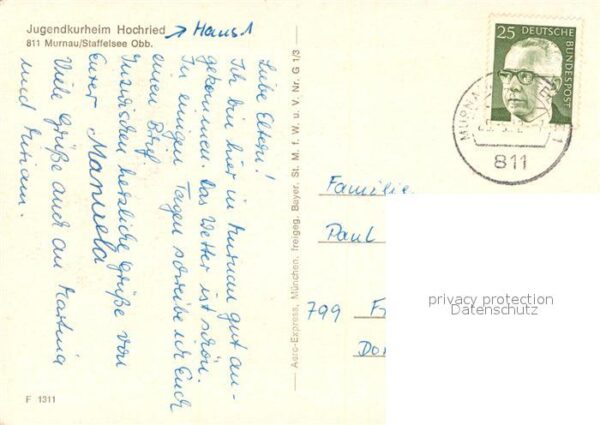 Jugendkurheim Hochried → Haus 1
811 Murnau/Staffelsee Obb.
Liebe Eltern!
Ich bin hier in Murnau gut an-
gekommen. Das Wetter ist schön.
In einigen Tagen schreibe ich Euch
einen Brief.
Inzwischen herzliche Grüße von
Eurer Manuela
Viele Grüße auch an Martina
und Miriam.
F 1311
Aero-Express, München, freigeg. Bayer. St. M. f. W. u. V. Nr. G 1/3
25 DEUTSCHE
BUNDESPOST
MURNAU
811
Familie
Paul
799 F
Do
privacy protection
Datenschutz